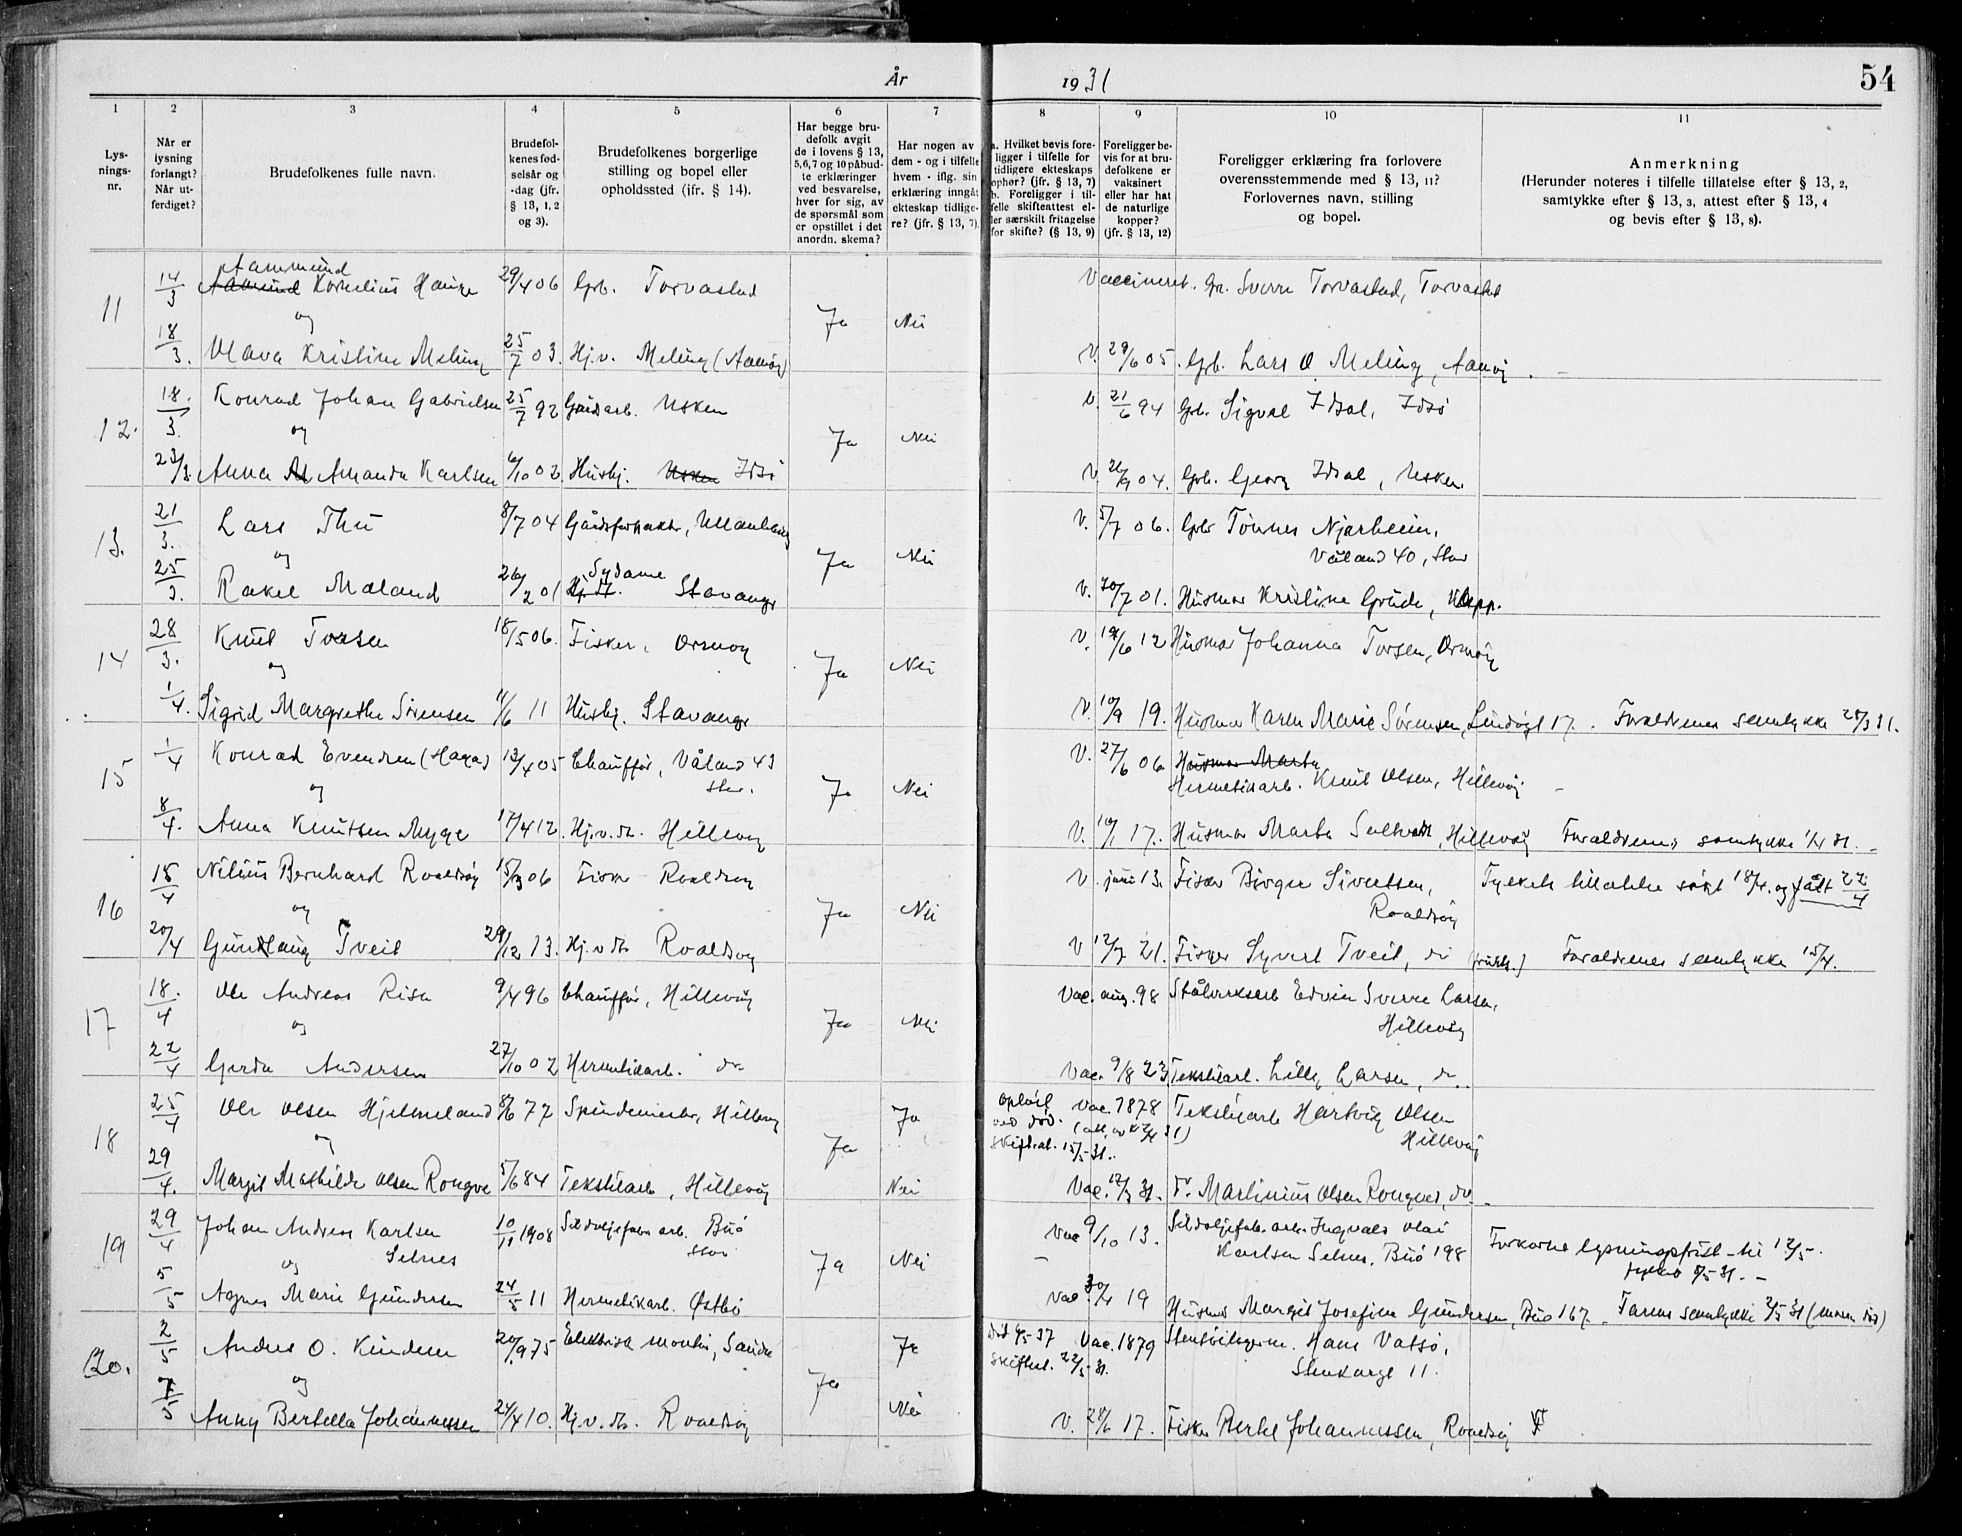 År 1931
54
1 2 3 4 5 6 7 8 9 10 11
Lys-
nings-
nr.
Når er
lysning
forlangt?
Når ut-
ferdiget?
Brudefolkenes fulle navn.
Brudefol-
kenes fød-
selsår og
-dag (jfr.
§ 13, 1, 2
og 3).
Brudefolkenes borgerlige
stilling og bopel eller
opholdssted (jfr. § 14).
Har begge bru-
defolk avgit
de i lovens § 13,
5, 6, 7 og 10 påbud-
te erklæringer
ved besvarelse,
hver for sig, av
de spørsmål som
er opstillet i det
anordn. skema?
Har nogen av
dem - og i tilfelle
hvem - iflg. sin
erklæring inngåt
ekteskap tidlige-
re? (jfr. § 13, 7).
a. Hvilket bevis fore-
ligger i tilfelle for
tidligere ekteskaps
ophør? (jfr. § 13, 7)
b. Foreligger i til-
felle skifteattest el-
ler særskilt fritagelse
for skifte? (§ 13, 9)
Foreligger be-
vis for at bru-
defolkene er
vaksinert
eller har hat
de naturlige
kopper?
(jfr. § 13, 12)
Foreligger erklæring fra forlovere
overensstemmende med § 13, 11?
Forlovernes navn, stilling
og bopel.
Anmerkning
(Herunder noteres i tilfelle tillatelse efter § 13, 2,
samtykke efter § 13, 3, attest efter § 13, 4
og bevis efter § 13, 8).
Aammund
11 14/3 Kornelius Hauge 29/4 06 Grb. Torvastad Vaccineret. Gr. Sverre Torvastad, Torvastad
og Ja Nei
18/3. Olava Kristine Meling 25/7 03. Hj.v. Meling (Aamøy) V. 29/6 05. Grb. Lars O Meling, Aamøy.
12. 18/3. Konrad Johan Gabrielsen 25/7 92 Gårdsarb. Usken V. 21/6 94 Grb. Sigval Idsal, Idsø
og Ja Nei
23/3. Anna Amanda Karlsen 6/10 02 Husbj. Usken Idsø V. 04. Grb. Georg Idsal, Usken.
13. 21/3. Lars Thu 8/7 04 Gårdsforpakter, Ullandhaug V. 5/7 06. Grb Tønnes Njærheim,
Våland 40, Stav
og Ja Nei
Sydame
25/3. Rakel Mæland 26/2 01 Stavanger V. 01. Husmor Kristine Grude, Klepp.
14 28/3. Knut Torsen 18/5 06. Fisker, Ormøy V. 12 Husmor Johanna Torsen, Ormøy
og Ja Nei
1/4. Sigrid Margrethe Sørensen 11/6 11 Husbj. Stavanger V. 10/9 19. Husmor Karen Marie Sørensen, Lindøygt 17. Forældrenes samtykke 28/3 31.
15 1/4 Konrad Evensen (Haga) 13/4 05 Chauffør, Våland 43
Stav. V. 27/6 06 Husmor Marta
Hermetikarb. Knut Olsen, Hillevåg
og Ja Nei
8/4. Anna Knutsen Mygge 17/4 12. Hj.v.m. Hillevåg V. 17. Husmor Marta, Hillevåg Forældrenes samtykke 1/4 31.
16 18/4 Nilius Bernhard Roaldsøy 15/3 06 Fisker Roaldsøy V. juni 13. Fisker Birger Sivertsen,
Roaldsøy Fylkets tillatelse søkt 18/4. og fått 22/4
og Ja Nei
20/4 Gunlaug Tveit 29/12 13. Hj.v.m. Roaldsøy V 21. Fisker Syvert Tveit, do Forældrenes samtykke 15/4.
17 18/4 Ole Andreas Risa 9/4 96 Chauffør, Hillevåg Vac. aug. 98 Stålverksarb Edvin Sverre Larsen,
Hillevåg
og Ja Nei
22/4 Gerda Andersen 27/10 02 Hermetikarb. do Vac. 9/8 23 Tekstilarb. Lilly Larsen, do.
18 25/4 Ole Olsen Hjelmeland 8/6 77 Spindemester, Hillevåg Ja Opløst
ved død.
Skifteat. 15/5-31. Vac. 1878 Tekstilarb Hartvig Olsen
Hillevåg
og Ja
29/4. Margit Mathilde Olsen Rongve 5/6 84 Tekstilarb, Hillevåg Nei Vac. 31. Fr. Martinius Olsen Rongved, do.
19 29/4 Johan Andreas Karlsen
Selnes 10/11 1908 Sildoljefabr arb. Buø
Stav Vac 9/10 13. Sildoljefab. arb. Ingvald Olai
Karlsen Selnes, Buø 198 Forkortet lysningsfrist til 12/5.
og Ja Nei
5/5 Agnes Marie Gundersen 24/5 11 Hermetikarb. Østbø Vac 19 Husmor Margit Josefine Gundersen, Buø 167. Farens samtykke 2/5 31 (moren død)
20. 2/5 Anders O. Kindem 20/9 75 Elektrisk montør, Sauda Ja Skifteat. 22/5-31. Vac. 1879 Hans Vatsø,
Stenkargt 11.
og Ja
7/5 Anny Bertella Johannessen 24/4 10. Hj.v.m. Roaldsøy Nei V. 17. Fisker Bertel Johannessen, Roaldsøy